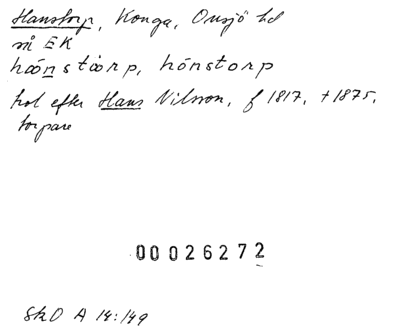 Hanstorp, Konga, Onsjö hd
så EK
hȯȯnstȧȯrp, hȯnstorp
kal efter Hans Nilsson, f 1817, +1875,
torpare
00026272
SkO A 14:149